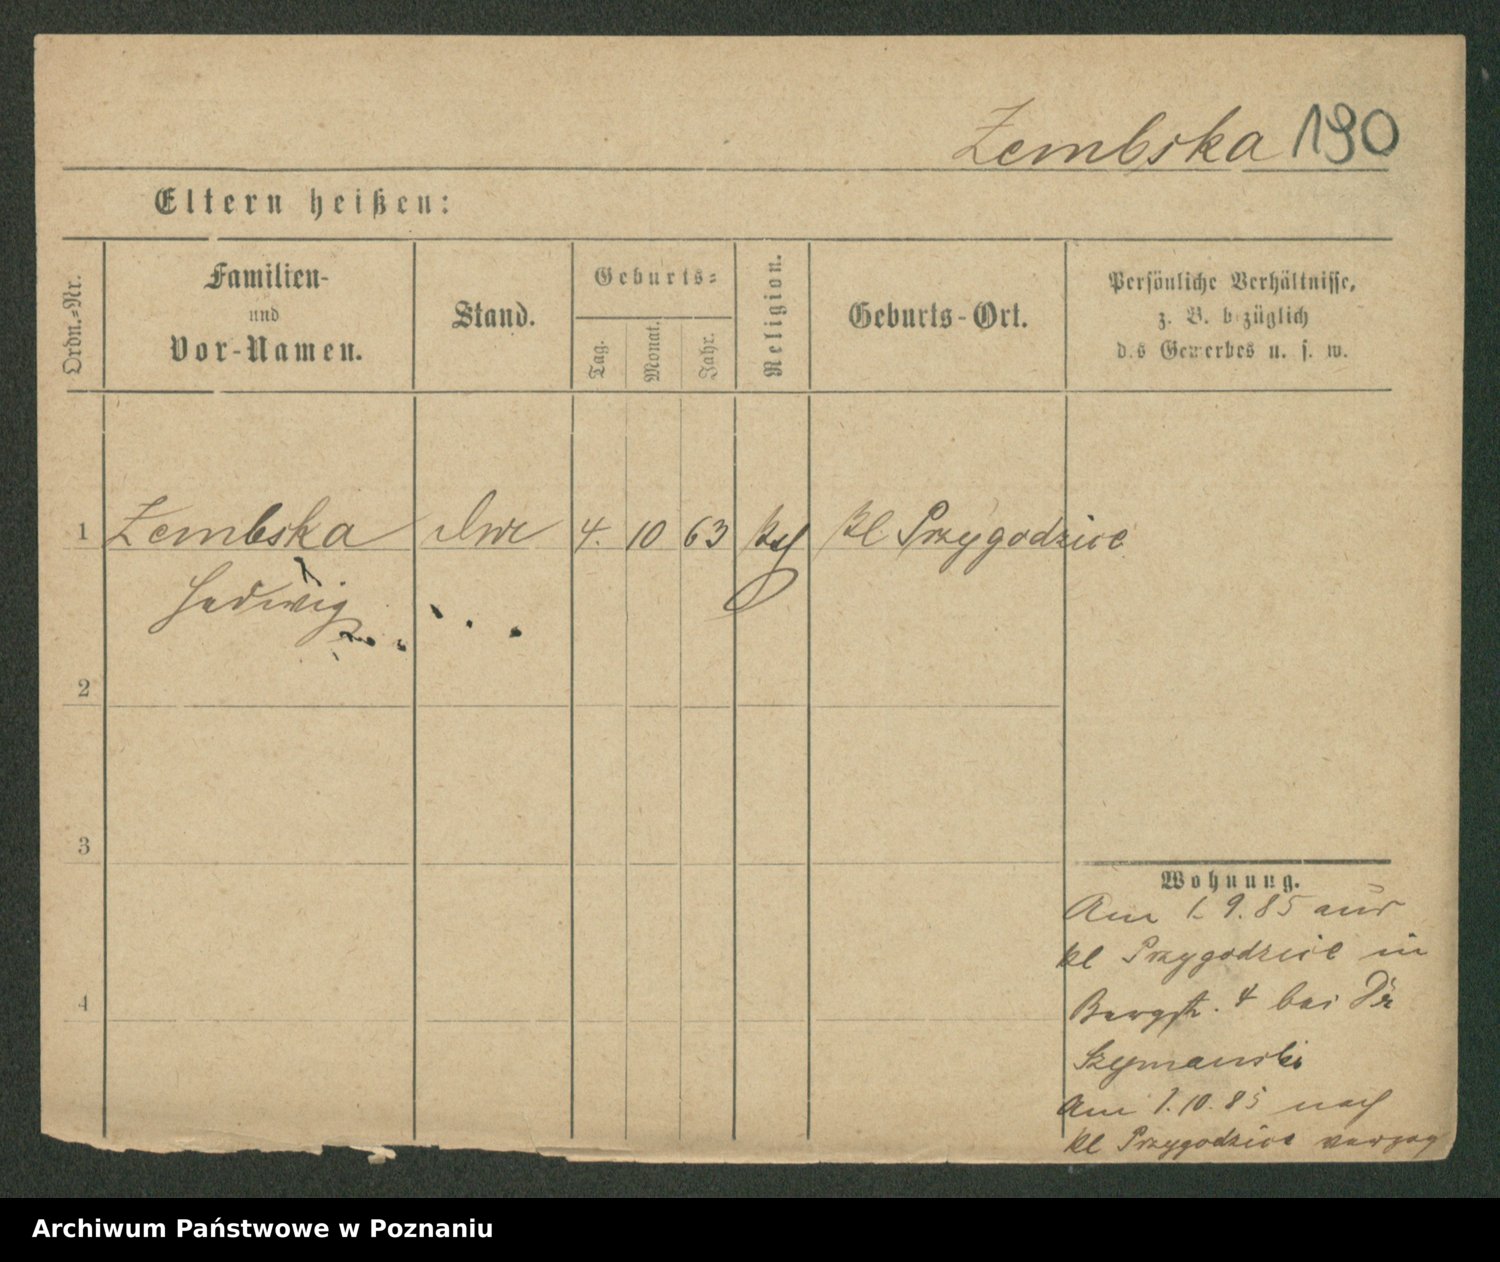 Zembska 190
Eltern heißen:
Ordn.-Nr.
Familien-
und
Vor-Namen.
Stand.
Geburts-
Tag.
Monat.
Jahr.
Religion.
Geburts-Ort.
Persönliche Verhältnisse,
z. B. bezüglich
des Gewerbes u. s. w.
1 Zembska 4. 10 63 Kl Przygodzice
Hedwig
2
3
4
Wohnung.
Am 1. 9. 85 aus
Kl Przygodzice in
Bergstr. 4 bei Dr
Szymanski
Am 1. 10. 85 nach
Kl Przygodzice verzog
Archiwum Państwowe w Poznaniu